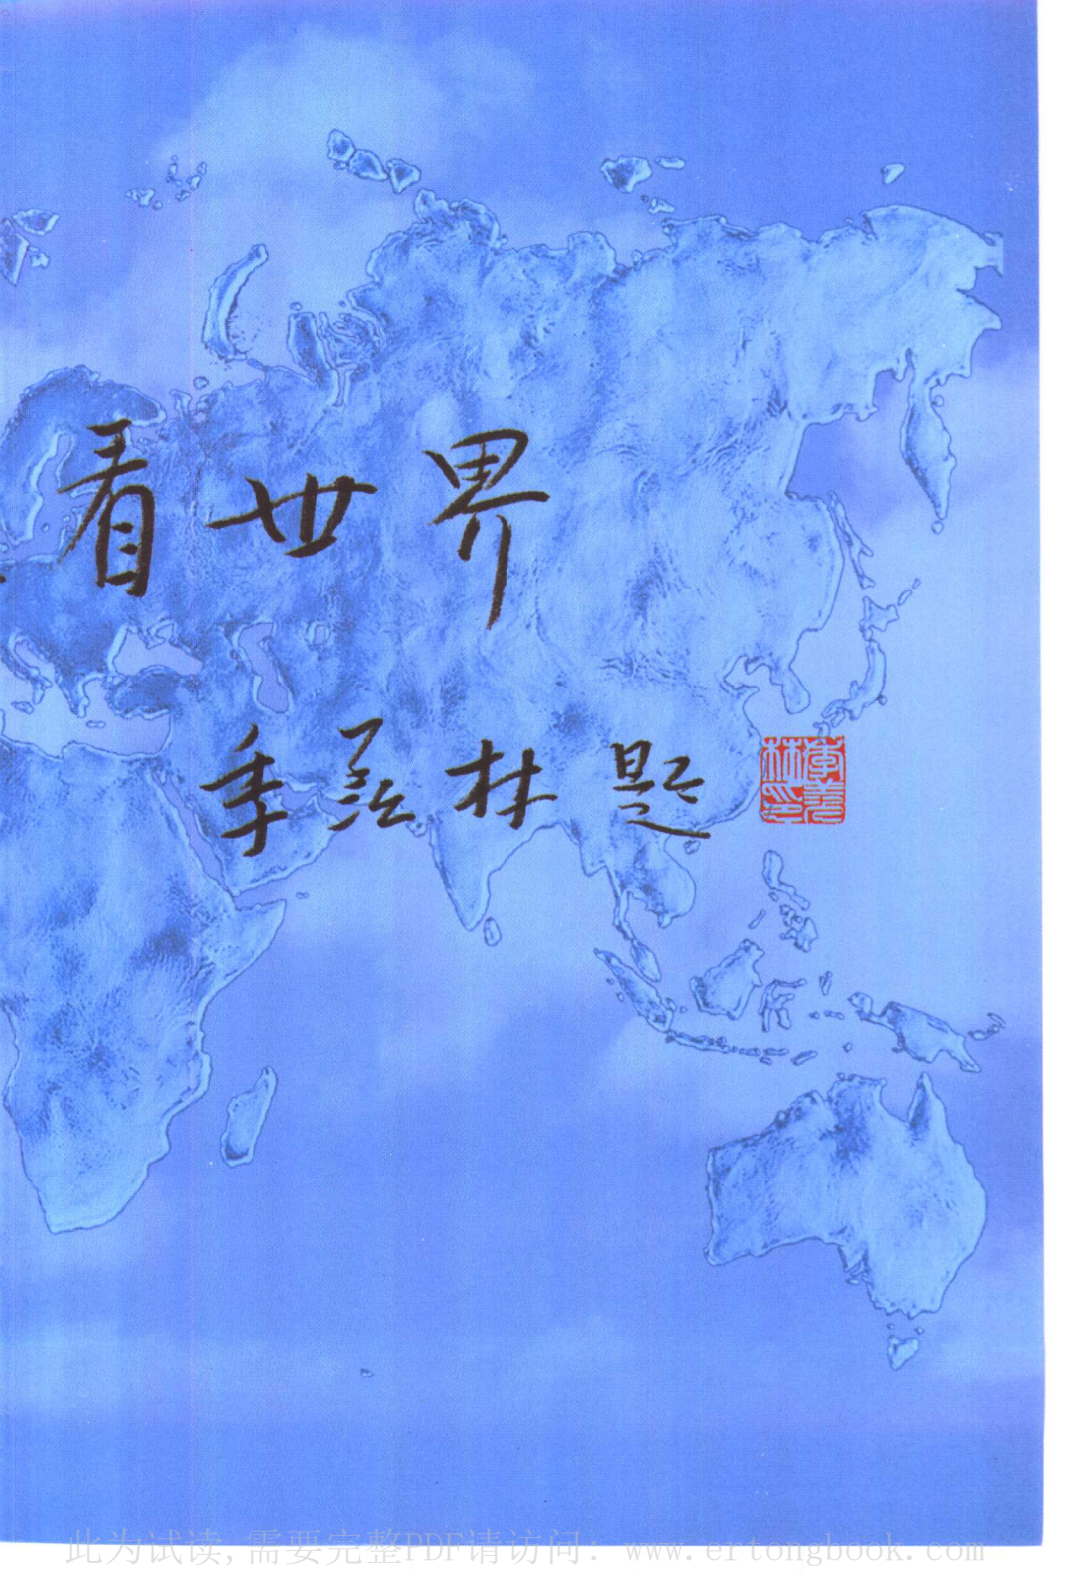 看世界
季羡林题
季羡林印
此为试读,需要完整PDF请访问: www.ertongbook.com